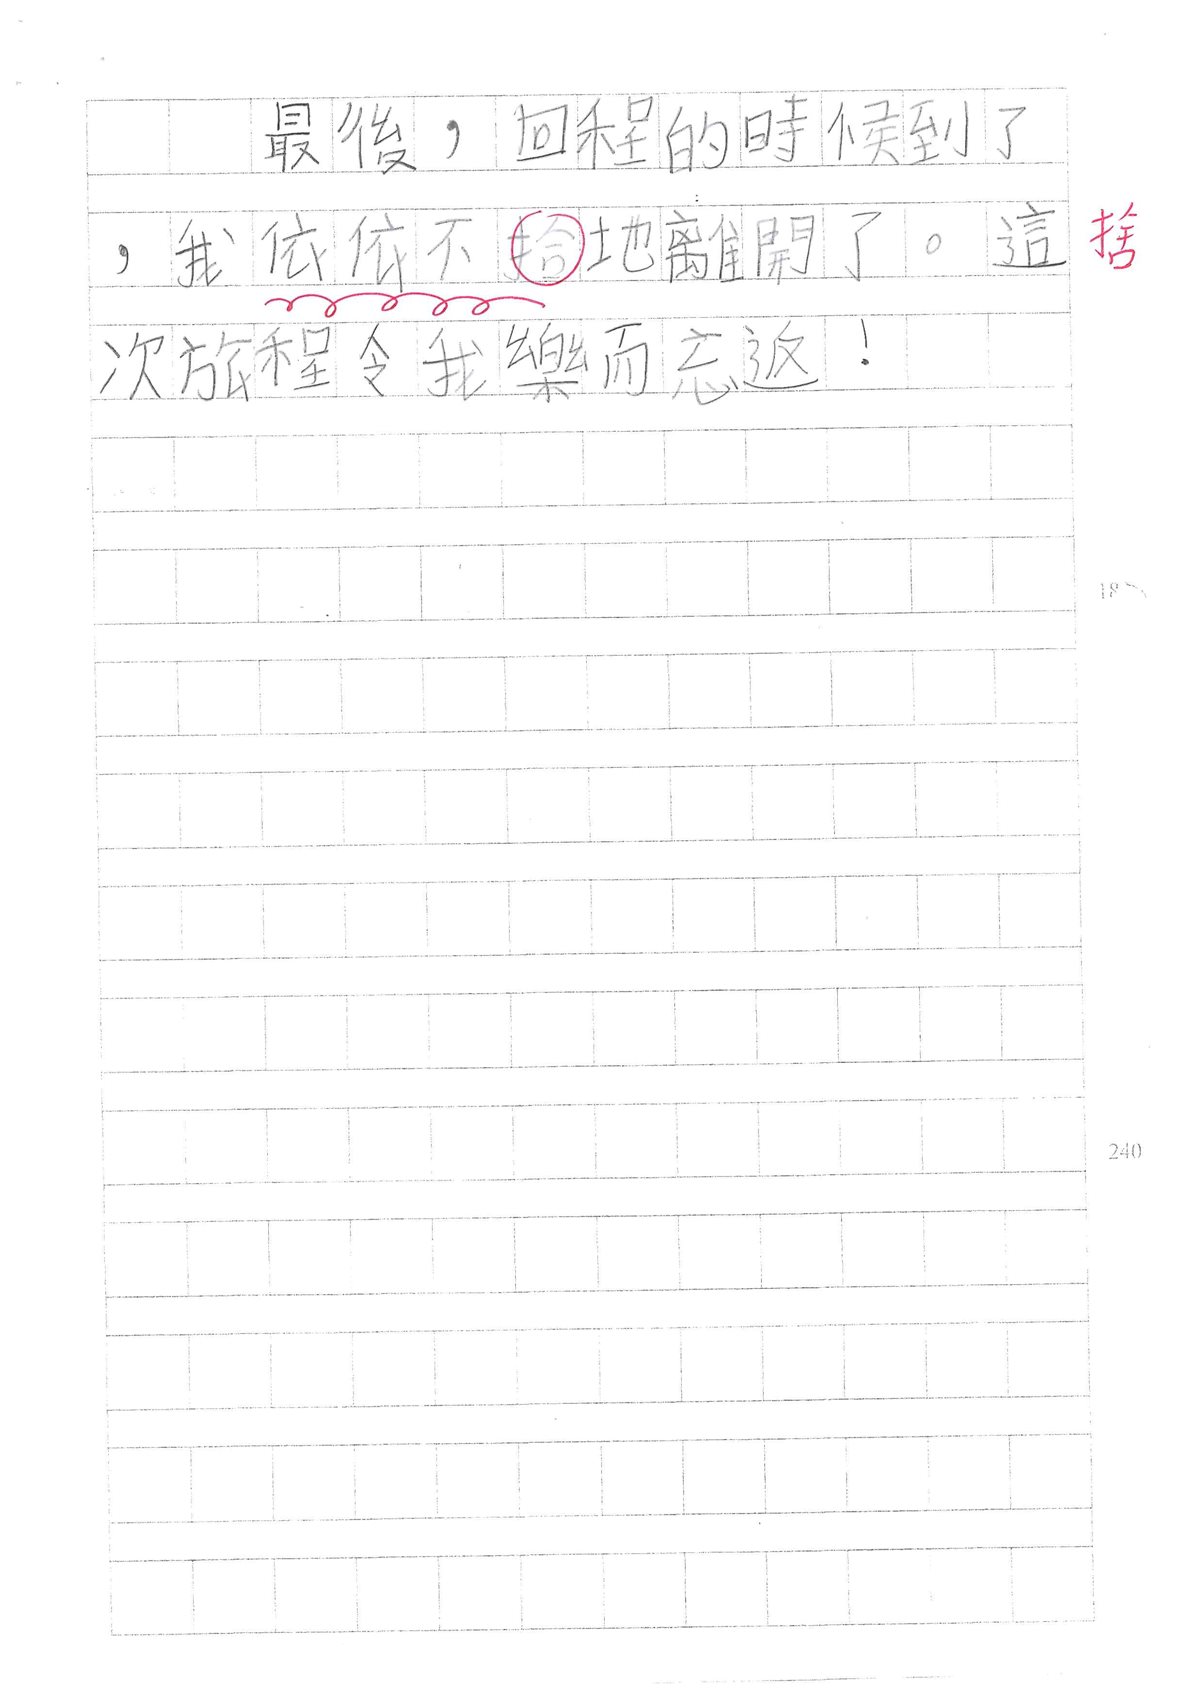 最後，回程的時候到了
，我依依不拾地離開了。這
捨
次旅程令我樂而忘返！
18
240